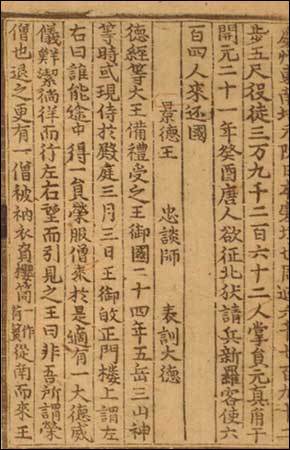 州東南境乃防日本塞垣也周迴六千七百九十二
步五尺役徒三萬九千二百六十二人掌員元真角干
開元二十一年癸酉唐人欲征北狄請兵新羅客使六
百四人來還國
景德王 忠談師 表訓大德
德經等大王備禮受之王御國二十四年五岳三山神
等時或現侍於殿庭三月三日王御敀正門樓上謂左
右曰誰能途中得一員榮服僧來於是適有一大德威
儀鮮潔徜徉而行左右望而引見之王曰非吾所謂榮
僧也退之更有一僧被衲衣負櫻筒一作荷簣從南而來王